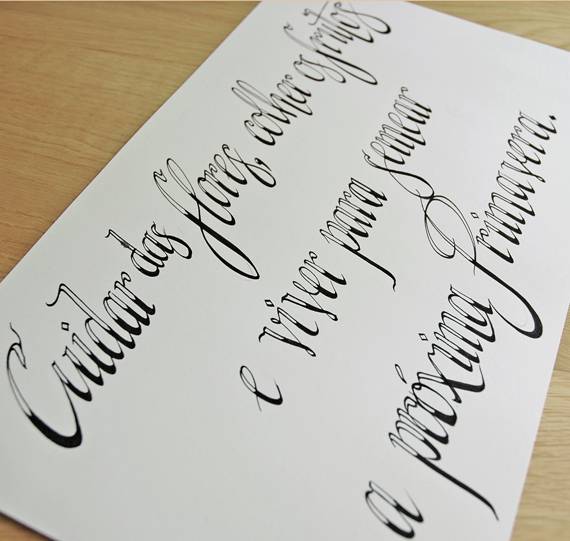 Cuidar das flores, colher os frutos
e viver para semear
a próxima Primavera.